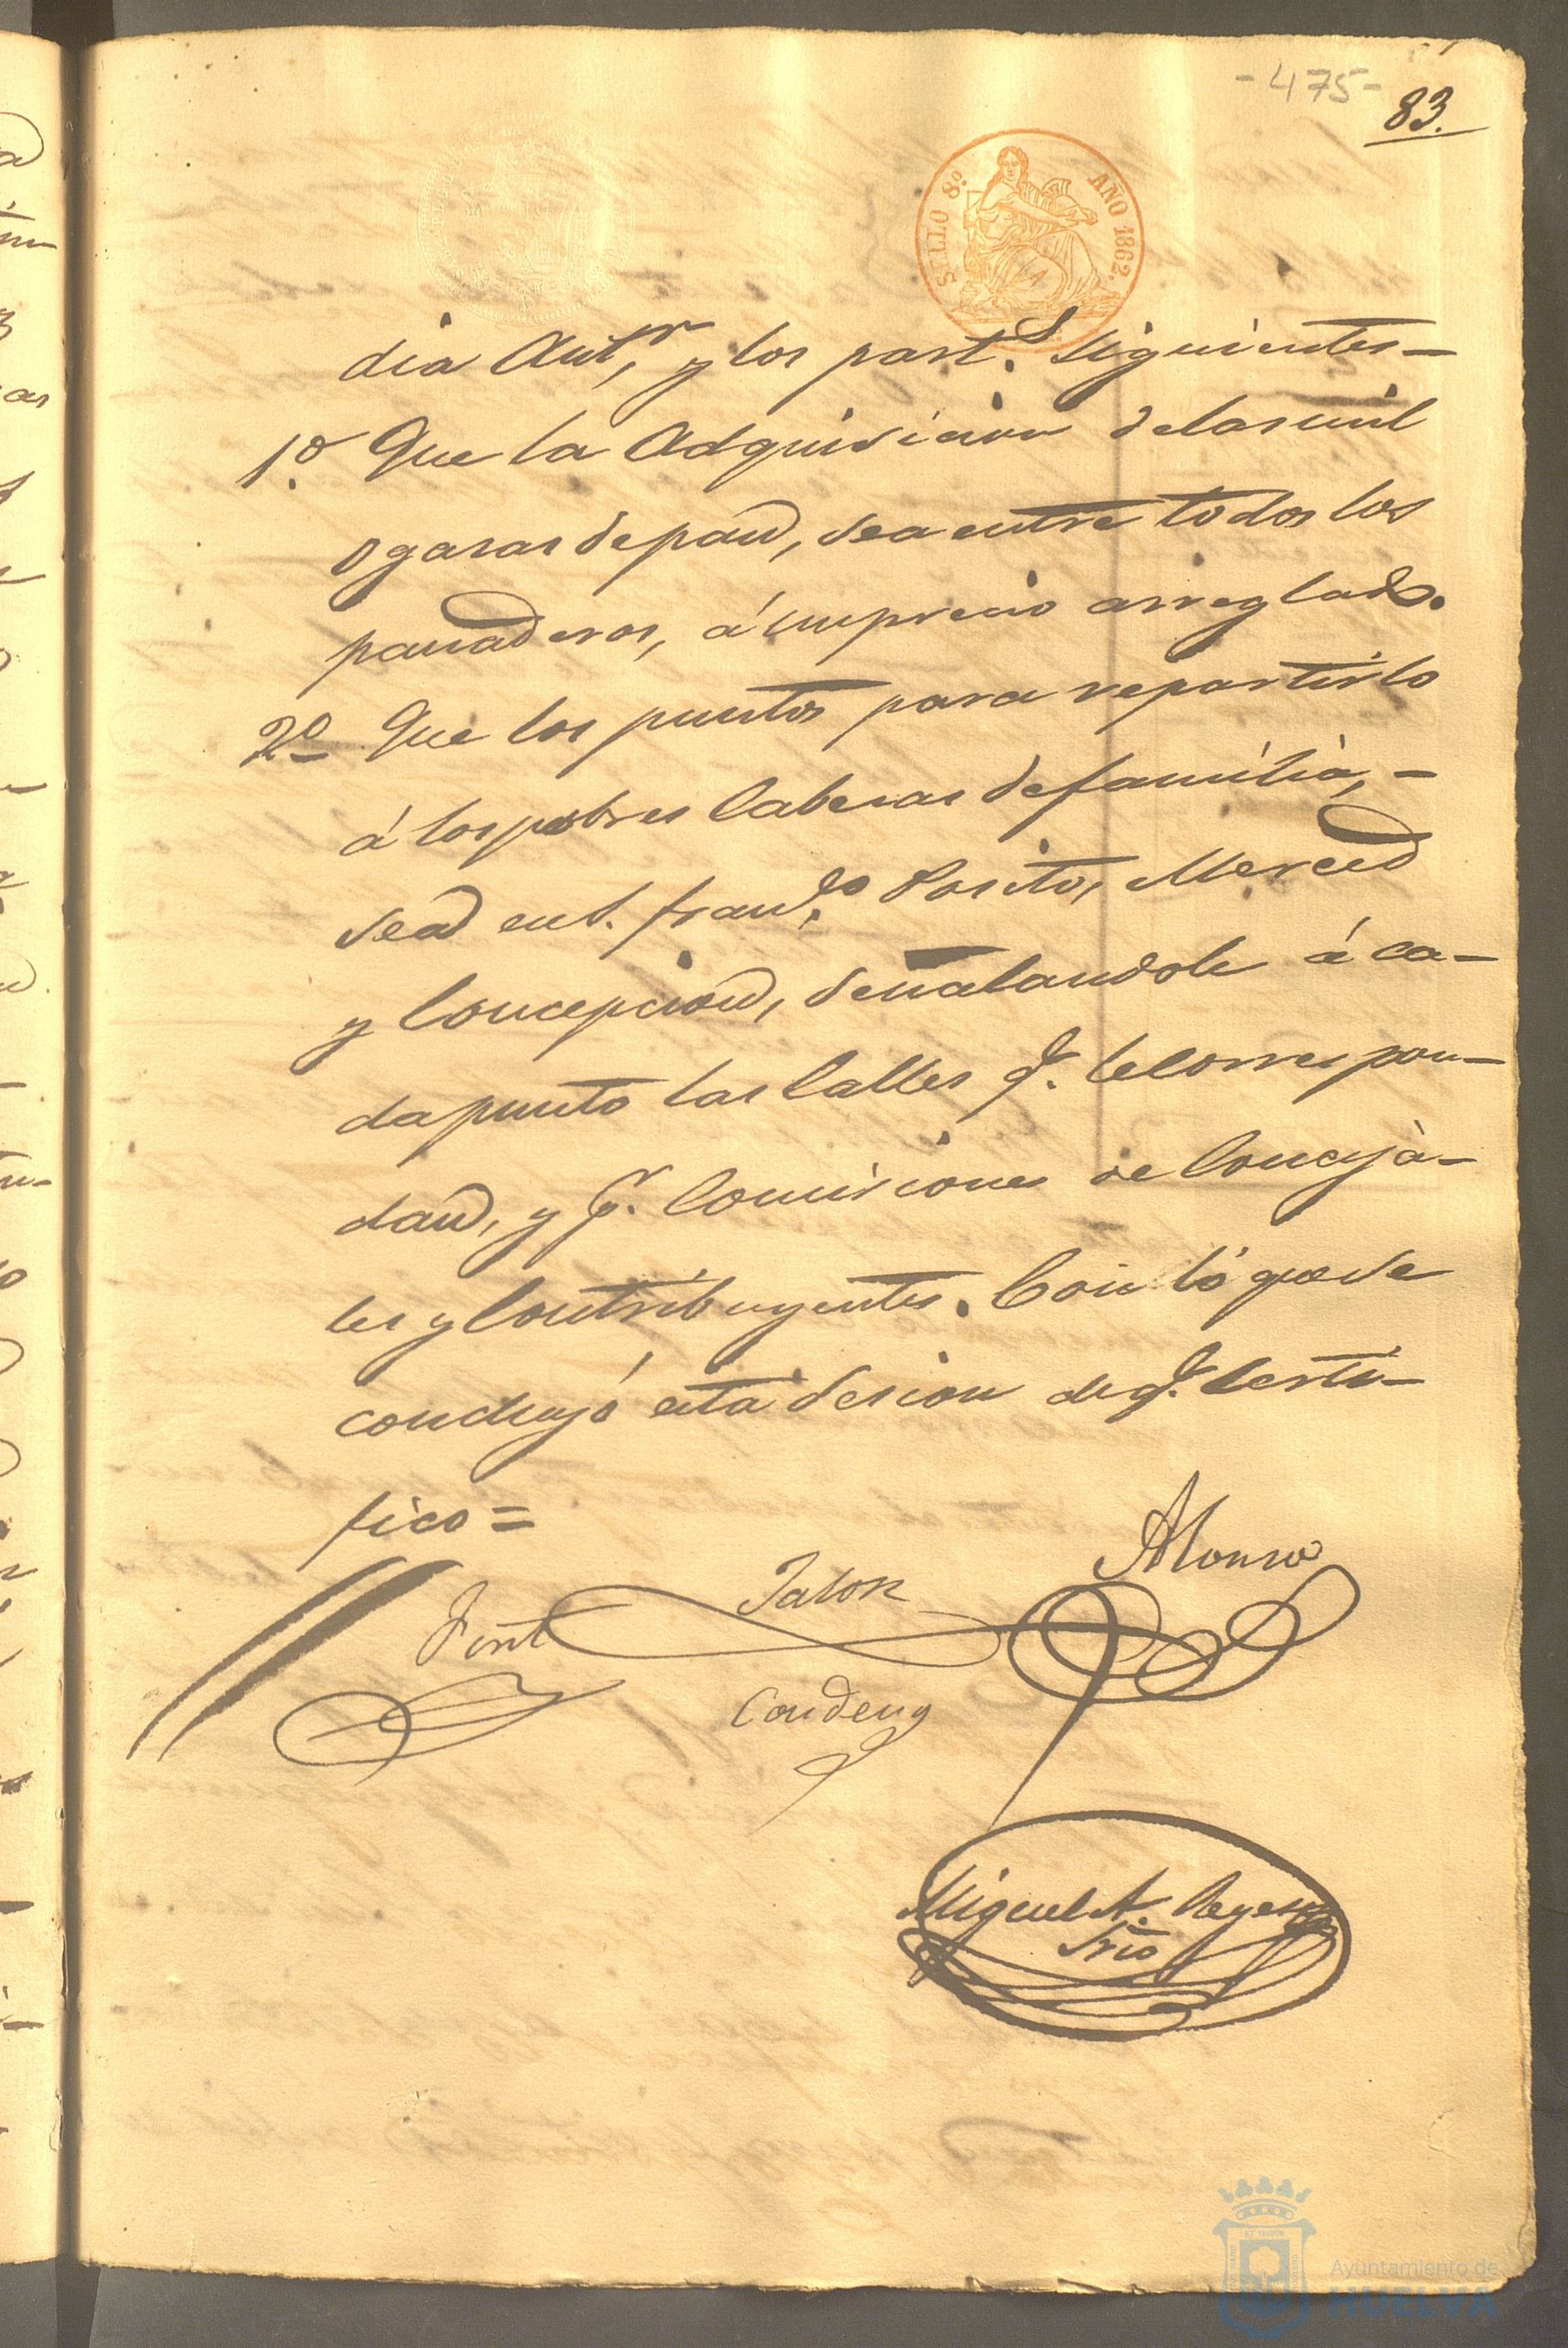 - 475 -
83.
SELLO 8º.
AÑO 1862.
dia Antr., y los part.s siguientes—
1.º Que la Adquisicion delasmil
ogasas depan, sea entre todos los
panaderos, á un precio arreglado.
2º Que los puntos para repartirlo
á los pobres Cabesas defamilia, —
sean en S. Fran.co Posito, Merced
y Concepcion, señalandole á ca-
da punto las Calles q.e le Correspon-
dan, y p.r Comisiones de Conceja-
les y Contribuyentes. Con lo que se
concluyó esta sesion de q.e Certi-
fico =
Alonso
Jalon
Font
Miguel A. Reyes
Srio
Ayuntamiento de
HUELVA